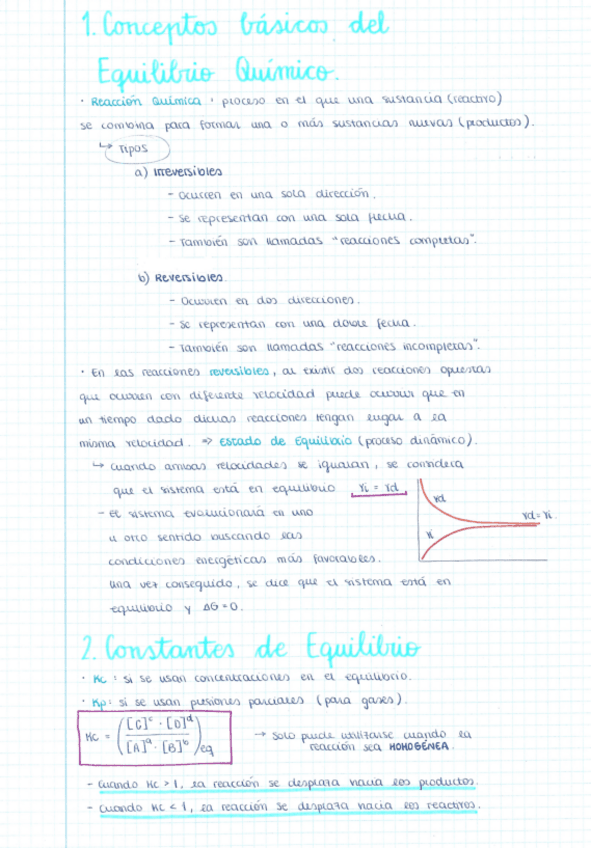 1. Conceptos básicos del
Equilibrio Químico.
· Reacción Química: proceso en el que una sustancia (reactivo)
se combina para formar una o más sustancias nuevas (productos).
↳ Tipos
a) Irreversibles
- Ocurren en una sola dirección.
- Se representan con una sola flecha.
- También son llamadas "reacciones completas".
b) Reversibles.
- Ocurren en dos direcciones.
- Se representan con una doble flecha.
- También son llamadas "reacciones incompletas".
· En las reacciones reversibles, al existir dos reacciones opuestas
que ocurren con diferente velocidad puede ocurrir que en
un tiempo dado dichas reacciones tengan lugar a la
misma velocidad. ⇒ Estado de Equilibrio (proceso dinámico).
↳ Cuando ambas velocidades se igualan, se considera
que el sistema está en equilibrio Vi = Vd
- el sistema evolucionará en uno
u otro sentido buscando las
condiciones energéticas más favorables.
Una vez conseguido, se dice que el sistema está en
equilibrio y ΔG = 0.
Vd
Vi
Vd = Vi
2. Constantes de Equilibrio
· Kc: si se usan concentraciones en el equilibrio.
· Kp: si se usan presiones parciales (para gases).
Kc = ([C]ᶜ · [D]ᵈ / [A]ᵃ · [B]ᵇ)eq
→ Solo puede utilizarse cuando la
reacción sea HOMOGÉNEA.
- Cuando Kc > 1, la reacción se desplaza hacia los productos.
- Cuando Kc < 1, la reacción se desplaza hacia los reactivos.